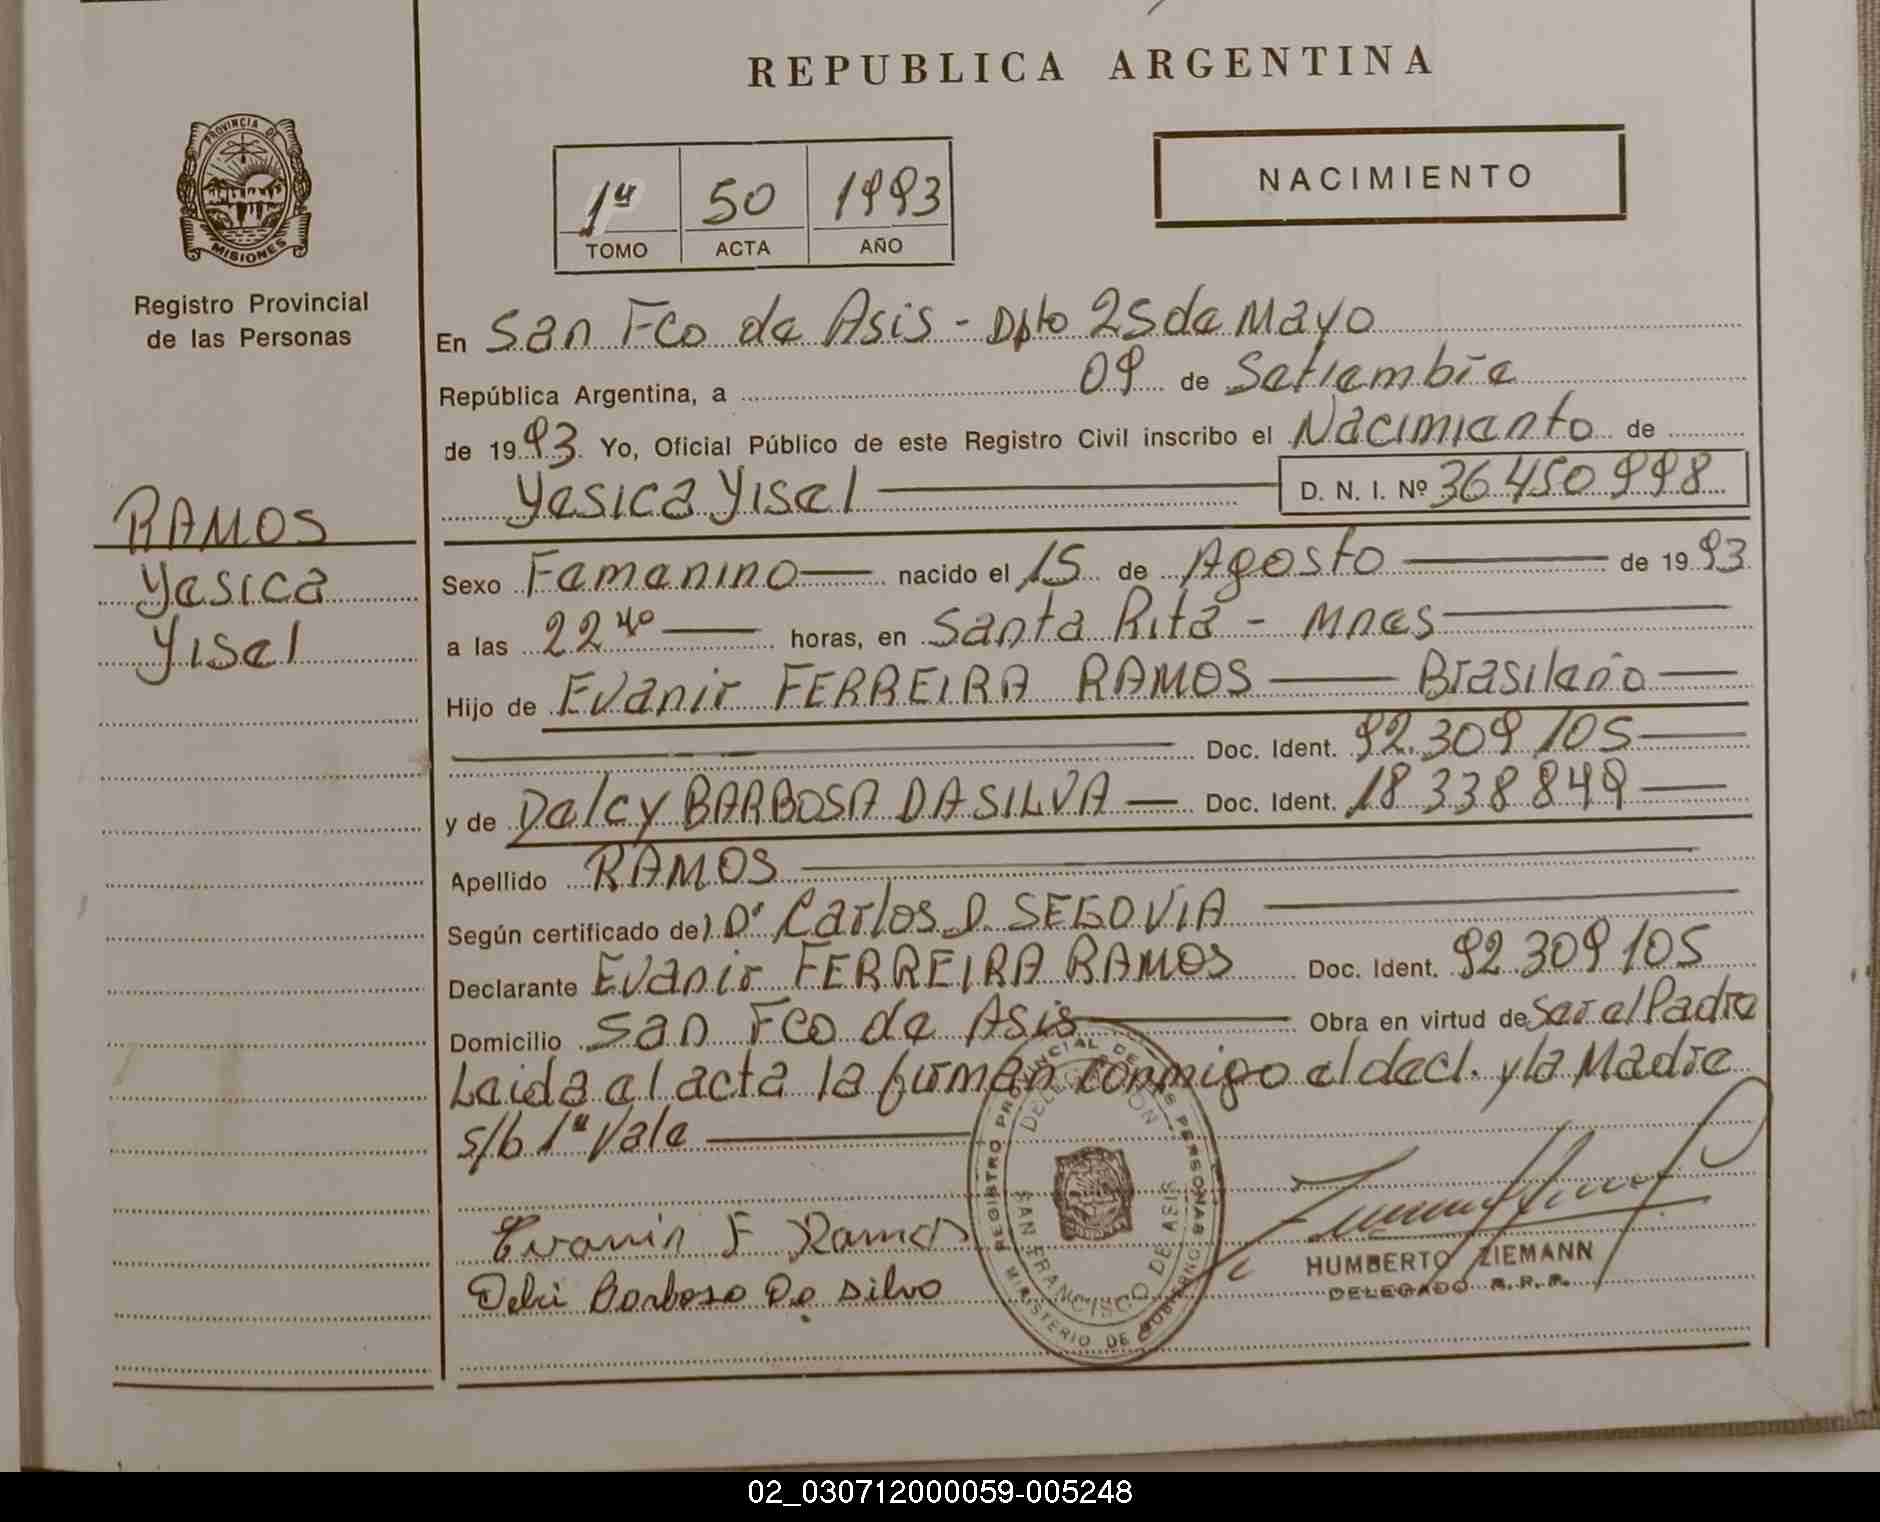 REPUBLICA ARGENTINA
PROVINCIA DE
MISIONES
Registro Provincial
de las Personas
1º 50 1993
TOMO ACTA AÑO
NACIMIENTO
En San Fco de Asis - Dpto 25 de Mayo
República Argentina, a 09 de Setiembre
de 1993 Yo, Oficial Público de este Registro Civil inscribo el Nacimiento de
Yesica Yisel D. N. I. Nº 36 450 998
RAMOS
Yesica
Yisel
Sexo Femenino nacido el 15 de Agosto de 1993
a las 22 40 horas, en Santa Rita - Mnes
Hijo de Evanir FERREIRA RAMOS Brasileño
Doc. Ident. 92.309 105
y de Delcy BARBOSA DA SILVA Doc. Ident. 18 338 849
Apellido RAMOS
Según certificado de) Dr Carlos D. SEGOVIA
Declarante Evanir FERREIRA RAMOS Doc. Ident. 92 309 105
Domicilio San Fco de Asis Obra en virtud de Ser el Padre
Leida al acta la firman conmigo el decl. y la Madre
s/b 1ª Vale
REGISTRO PROVINCIAL DE LAS PERSONAS
DELEGACION
SAN FRANCISCO DE ASIS
MINISTERIO DE GOBIERNO
Evanir F Ramos
Delci Barbosa Da Silva
HUMBERTO ZIEMANN
DELEGADO R. P. P.
02_030712000059-005248